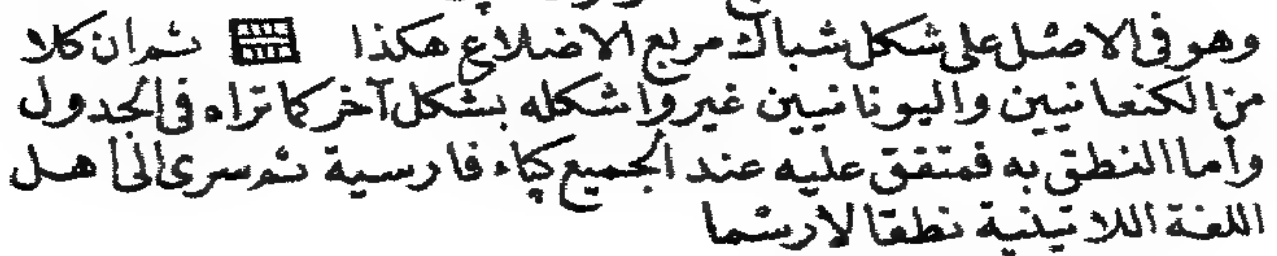 وهو فى الاصل على شكل شباك مربع الاضلاع هكذا ثم ان كلا
من الكنعانيين واليونانيين غيروا شكله بشكل آخر كما تراه فى الجدول
وأما النطق به فمتفق عليه عند الجميع كپاء فارسية ثم سرى الى أهل
اللغة اللاتينية نطقا لا رسما